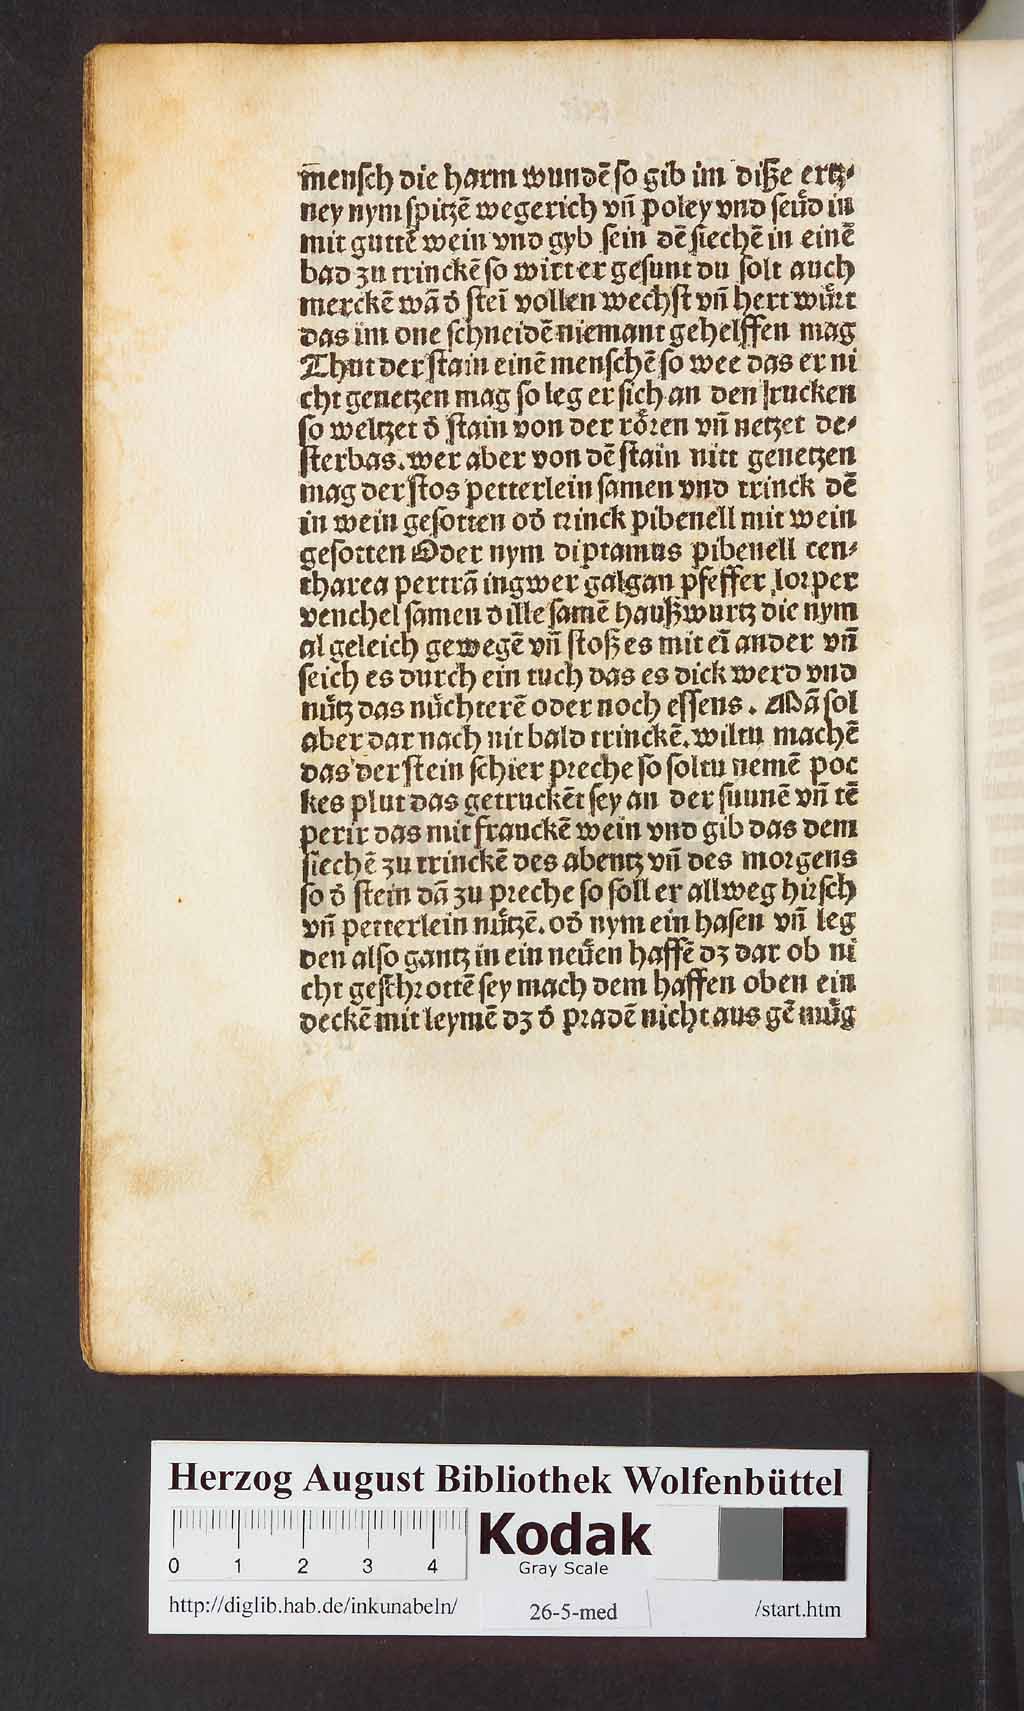 m̄enſch die harm wundē ſo gib im diße ertz⸗
ney nym ſpitzē wegerich vn̄ poley vnd ſeuͤd in
mit guttē wein vnd gyb ſein dē ſiechē in einē
bad zu trinckē ſo wirt er geſunt du ſolt auch
merckē wā d̄ ſtei᷑ vollen wechſt vn̄ hert wuͤrt
das im one ſchneidē niemant gehelffen mag
Thut der ſtain einē menſchē ſo wee das er ni
cht genetzen mag ſo leg er ſich an den rucken
ſo weltzet d̄ ſtain von der roͤꝛen vn̄ netzet de⸗
ſterbas. wer aber von dē ſtain nitt genetzen
mag der ſtos petterlein ſamen vnd trinck dē
in wein geſotten od̄ trinck pibenell mit wein
geſotten Oder nym diptamus pibenell cen⸗
tharea pertrā ingwer galgan pfeffer loꝛper
venchel ſamen dille ſamē haußwurtz die nym
al geleich gewegē vn̄ ſtoß es mit eī ander vn̄
ſeich es durch ein tuch das es dick werd vnd
nuͤtz das nuͤchterē oder noch eſſens. Mā ſol
aber dar nach nit bald trinckē. wiltu machē
das der ſtein ſchier pꝛeche ſo ſoltu nemē poc
kes plut das getruckēt ſey an der ſunnē vn̄ tē
perir das mit franckē wein vnd gib das dem
ſiechē zu trinckē des abentz vn̄ des moꝛgens
ſo d̄ ſtein dā zu pꝛeche ſo ſoll er allweg hirſch
vn̄ petterlein nuͤtzē. od̄ nym ein haſen vn̄ leg
den alſo gantz in ein neuͤen haffē dz dar ob ni
cht geſchꝛottē ſey mach dem haffen oben ein
deckē mit leymē dz d̄ pꝛadē nicht aus gē muͤg
Herzog August Bibliothek Wolfenbüttel
0 1 2 3 4
Kodak
Gray Scale
http://diglib.hab.de/inkunabeln/ 26-5-med /start.htm